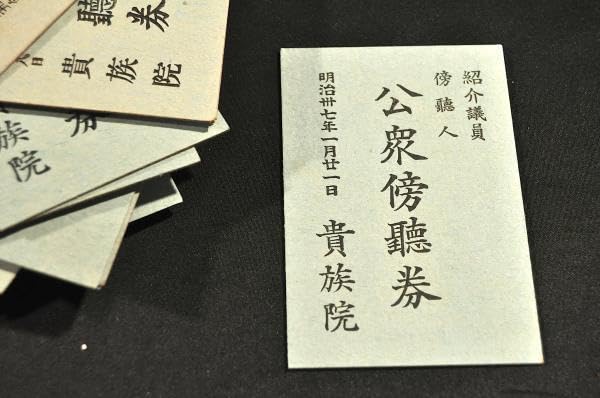 紹介議員
傍聽人
公衆傍聽券
明治卅七年一月廿一日
貴族院
聽券
貴族院
日
族院